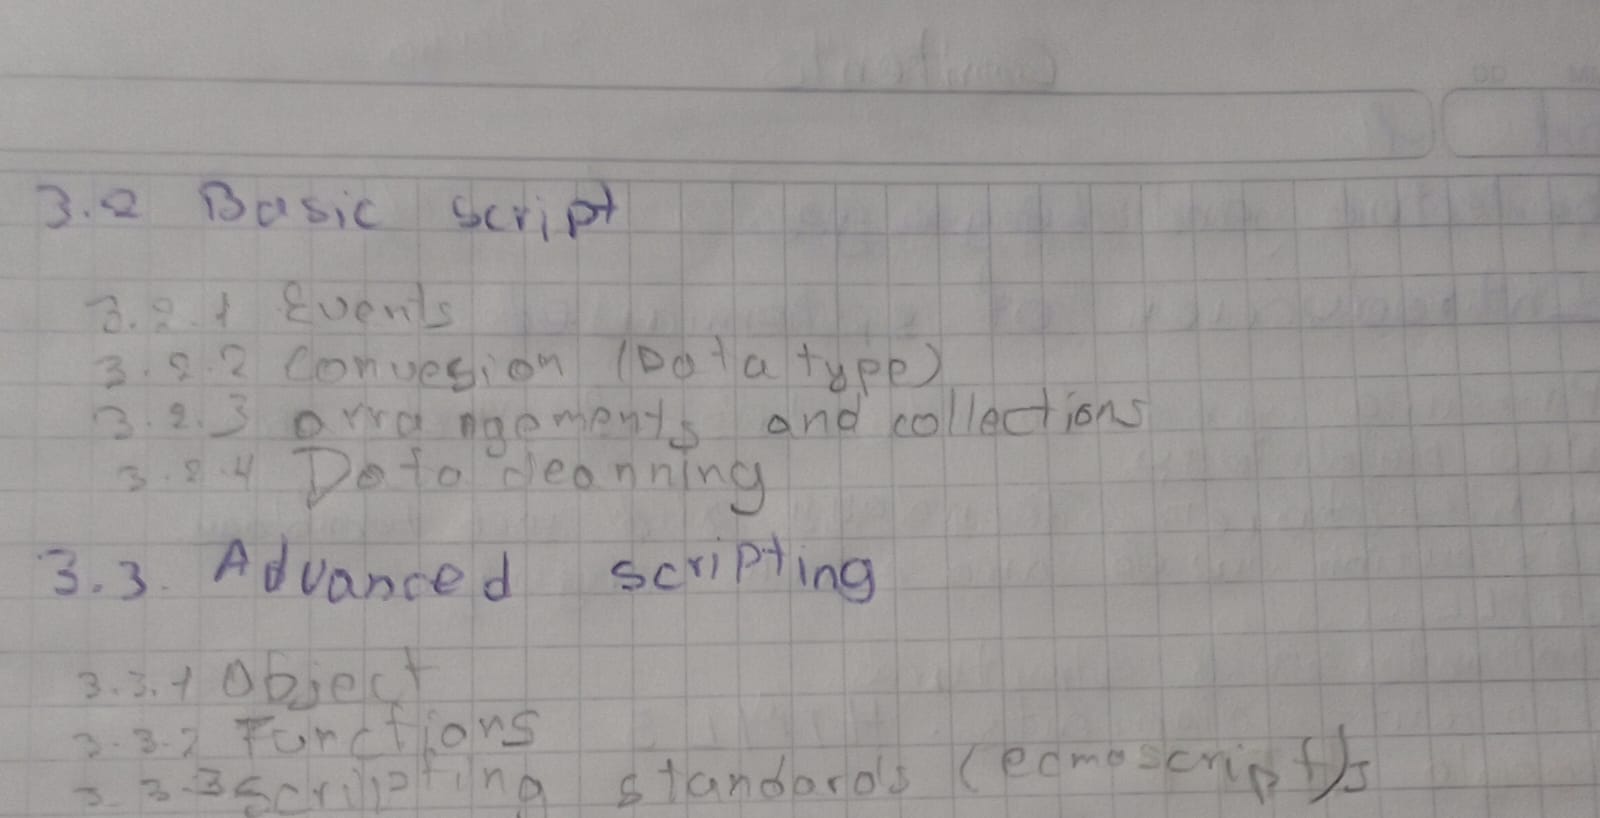 3.2 Basic script
3.2.1 Events
3.2.2 Convesion (Data type)
3.2.3 arrangements and collections
3.2.4 Data cleanning
3.3. Advanced scripting
3.3.1 Object
3.3.2 Functions
3.3.3 Scripting standards (ecmascript)s